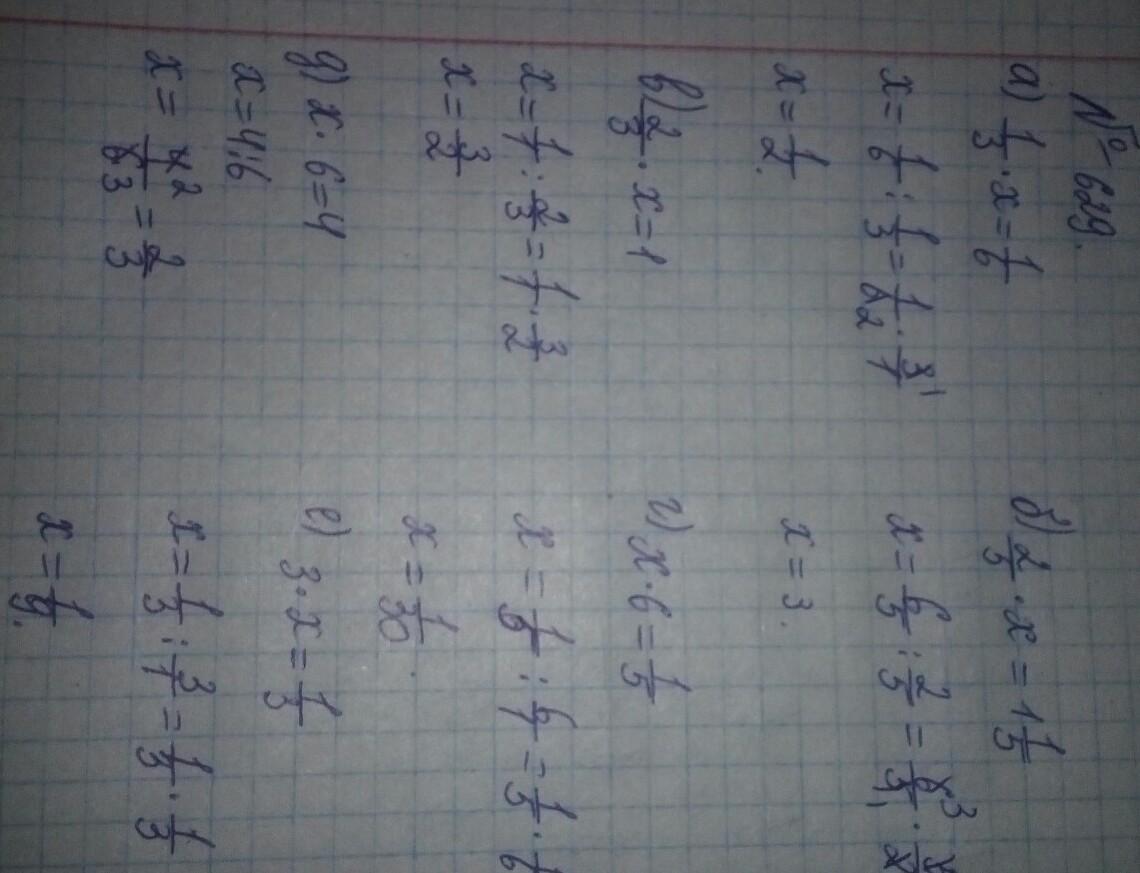 № 629.
а) 1/3 · x = 1/6
x = 1/6 : 1/3 = 1/6 2 · 3 1/1
x = 1/2.
в) 2/3 · x = 1
x = 1/1 : 2/3 = 1/1 · 3/2
x = 3/2
д) x · 6 = 4
x = 4:6
x = 4 2/6 3 = 2/3
б) 2/5 · x = 1 1/5
x = 6/5 : 2/5 = 6 3/5 1 · 5/2
x = 3.
г) x · 6 = 1/5
x = 1/5 : 6/1 = 1/5 · 1/6
x = 1/30.
е) 3 · x = 1/3
x = 1/3 : 3/1 = 1/3 · 1/3
x = 1/9.